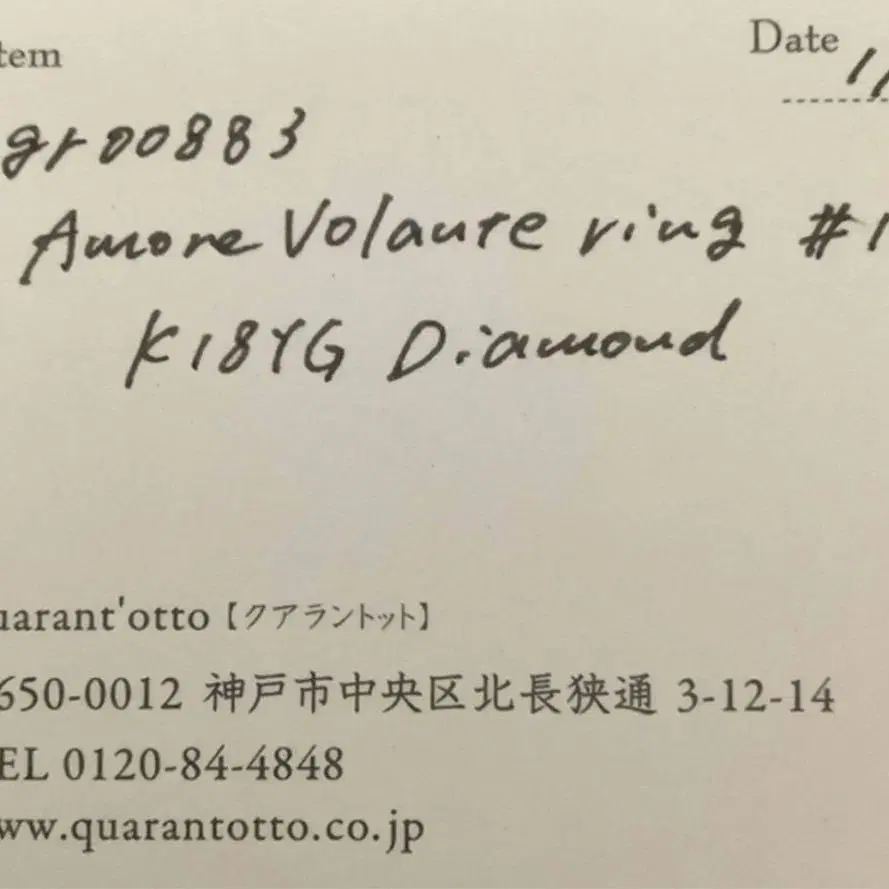 tem Date 1/
gr00883
Amore Volante ring #1
K18YG Diamond
uarant'otto【クアラントット】
650-0012 神戸市中央区北長狭通 3-12-14
EL 0120-84-4848
ww.quarantotto.co.jp